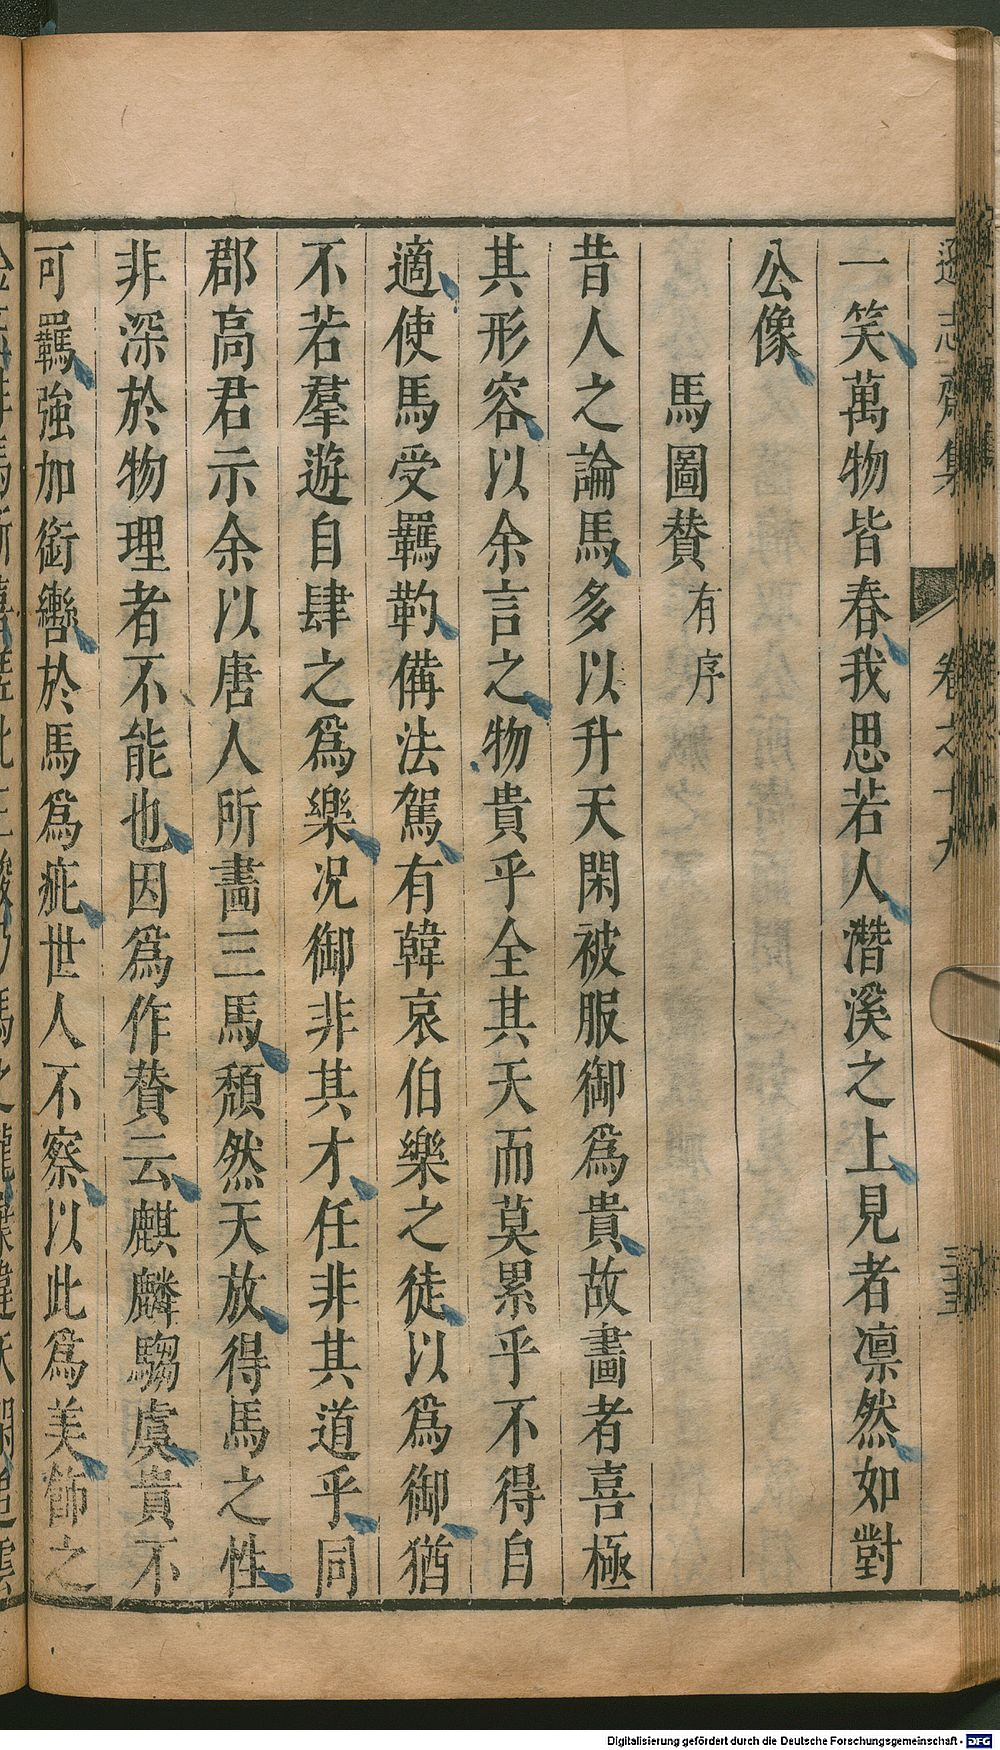 遜志齋集 卷之十九 三五
一笑萬物皆春我思若人潛溪之上見者凛然如對
公像
馬圖賛有序
昔人之論馬多以升天閑被服御爲貴故畫者喜極
其形容以余言之物貴乎全其天而莫累乎不得自
適使馬受羈靮備法駕有韓哀伯樂之徒以爲御猶
不若羣遊自肆之爲樂况御非其才任非其道乎同
郡高君示余以唐人所畫三馬頹然天放得馬之性
非深於物理者不能也因爲作賛云麒麟騶虞貴不
可羈強加銜轡於馬爲疵世人不察以此爲美飾之
Digitalisierung gefördert durch die Deutsche Forschungsgemeinschaft - DFG